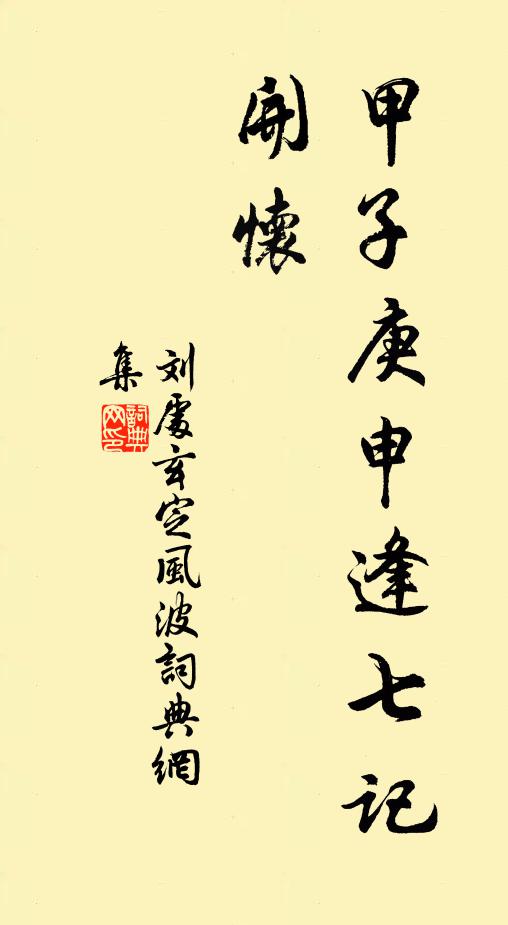 甲子庚申逢七記
開懷
刘處玄定風波詞典網
集
詞典
网印